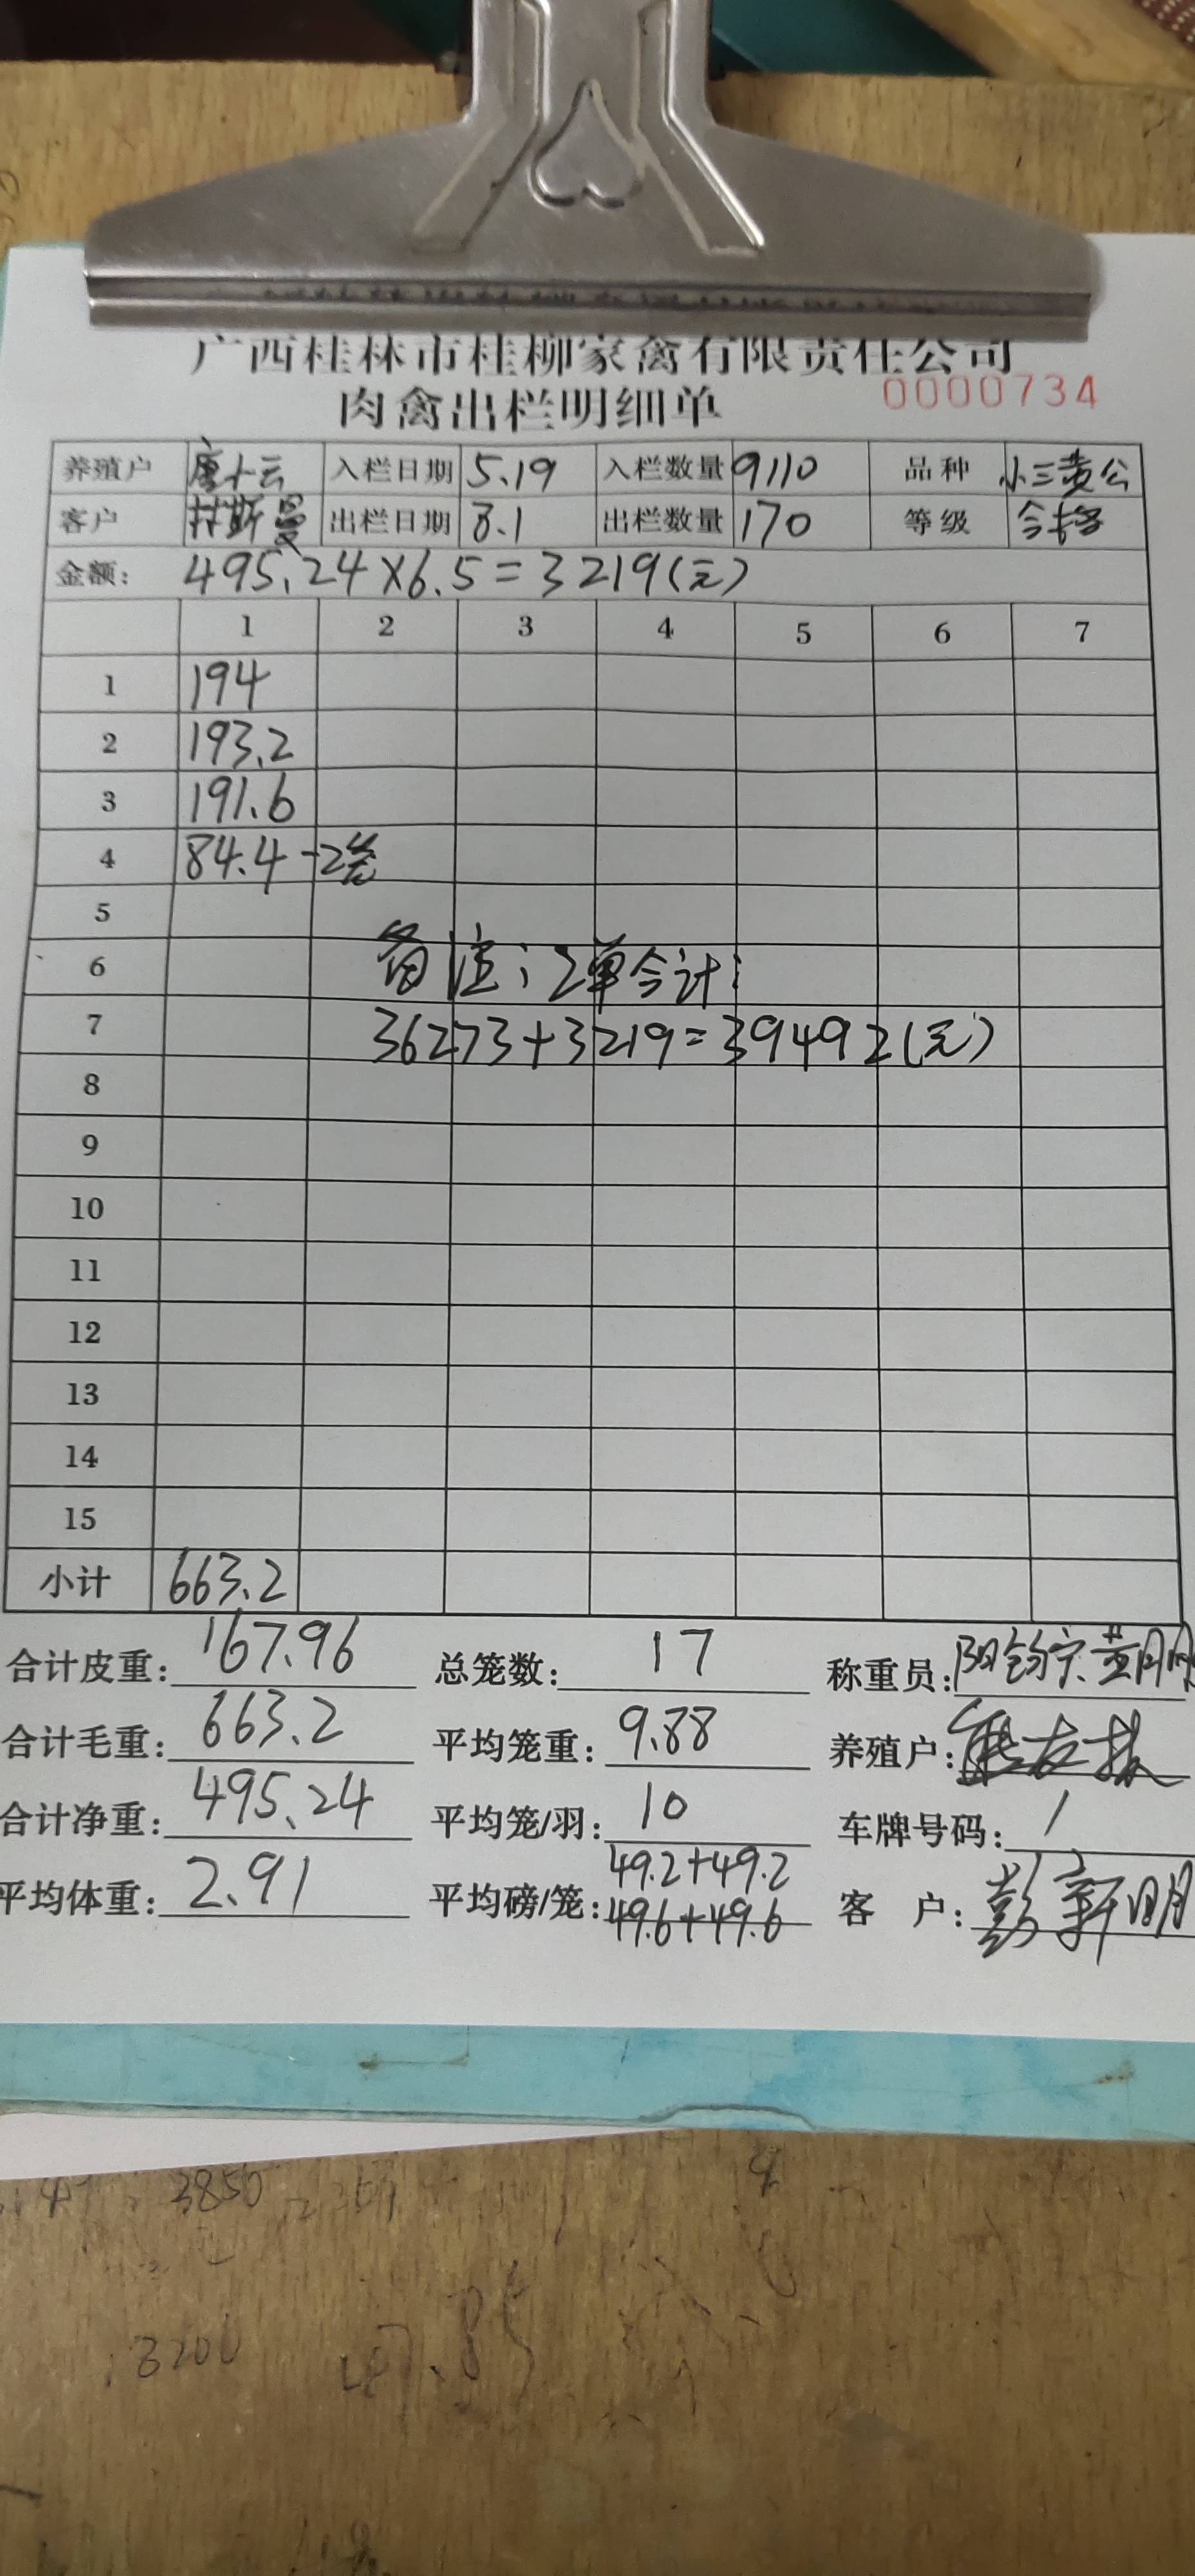 广西桂林市桂柳家禽有限责任公司
肉禽出栏明细单 0000734
养殖户 唐十云 入栏日期 5.19 入栏数量 9110 品种 小三黄公
客户 拉斯曼 出栏日期 8.1 出栏数量 170 等级 合格
金额: 495.24×6.5=3219(元)
1 2 3 4 5 6 7
1 194
2 193.2
3 191.6
4 84.4-2笼
5
6 备注:2单合计:
7 36273+3219=39492(元)
8
9
10
11
12
13
14
15
小计 663.2
合计皮重: 167.96 总笼数: 17 称重员:
合计毛重: 663.2 平均笼重: 9.88 养殖户:
合计净重: 495.24 平均笼/羽: 10 车牌号码: /
平均体重: 2.91 平均磅/笼: 49.2+49.2
49.6+49.6 客户: 彭新明
3850
3200